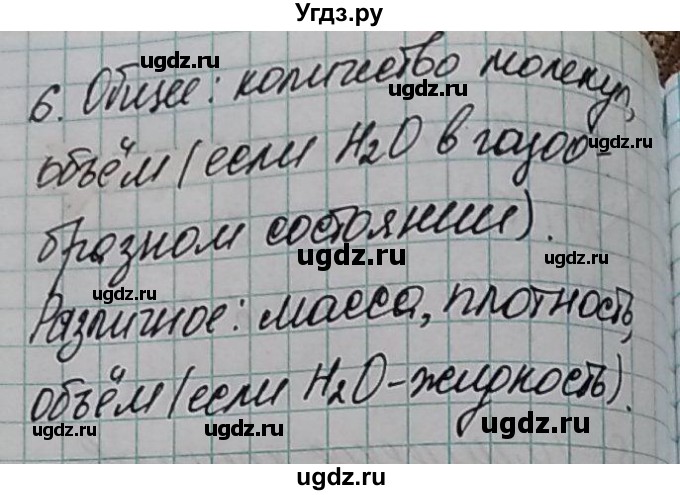 Угдз.ру
6. Общее: количество молекул,
объём (если H₂O в газоо-
бразном состоянии).
Различное: масса, плотность,
объём (если H₂O - жидкость).
ugdz.ru
ugdz.ru
ugdz.ru
ugdz.ru
ugdz.ru
ugdz.ru
ugdz.ru
ugdz.ru
ugdz.ru
ugdz.ru
ugdz.ru
ugdz.ru
ugdz.ru